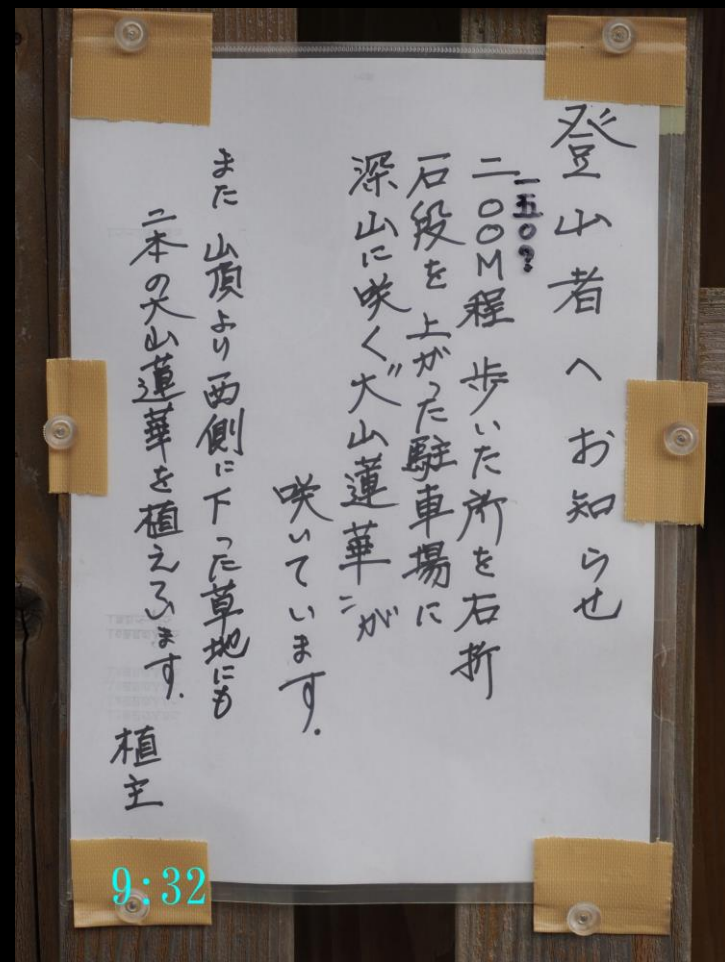 登山者へお知らせ
一五〇?
二〇〇M程 歩いた所を右折
石段を 上がった駐車場に
深山に咲く"大山蓮華"が
咲いています.
また 山頂より西側に下った草地にも
二本の大山蓮華を植えゐます.
植主
9:32